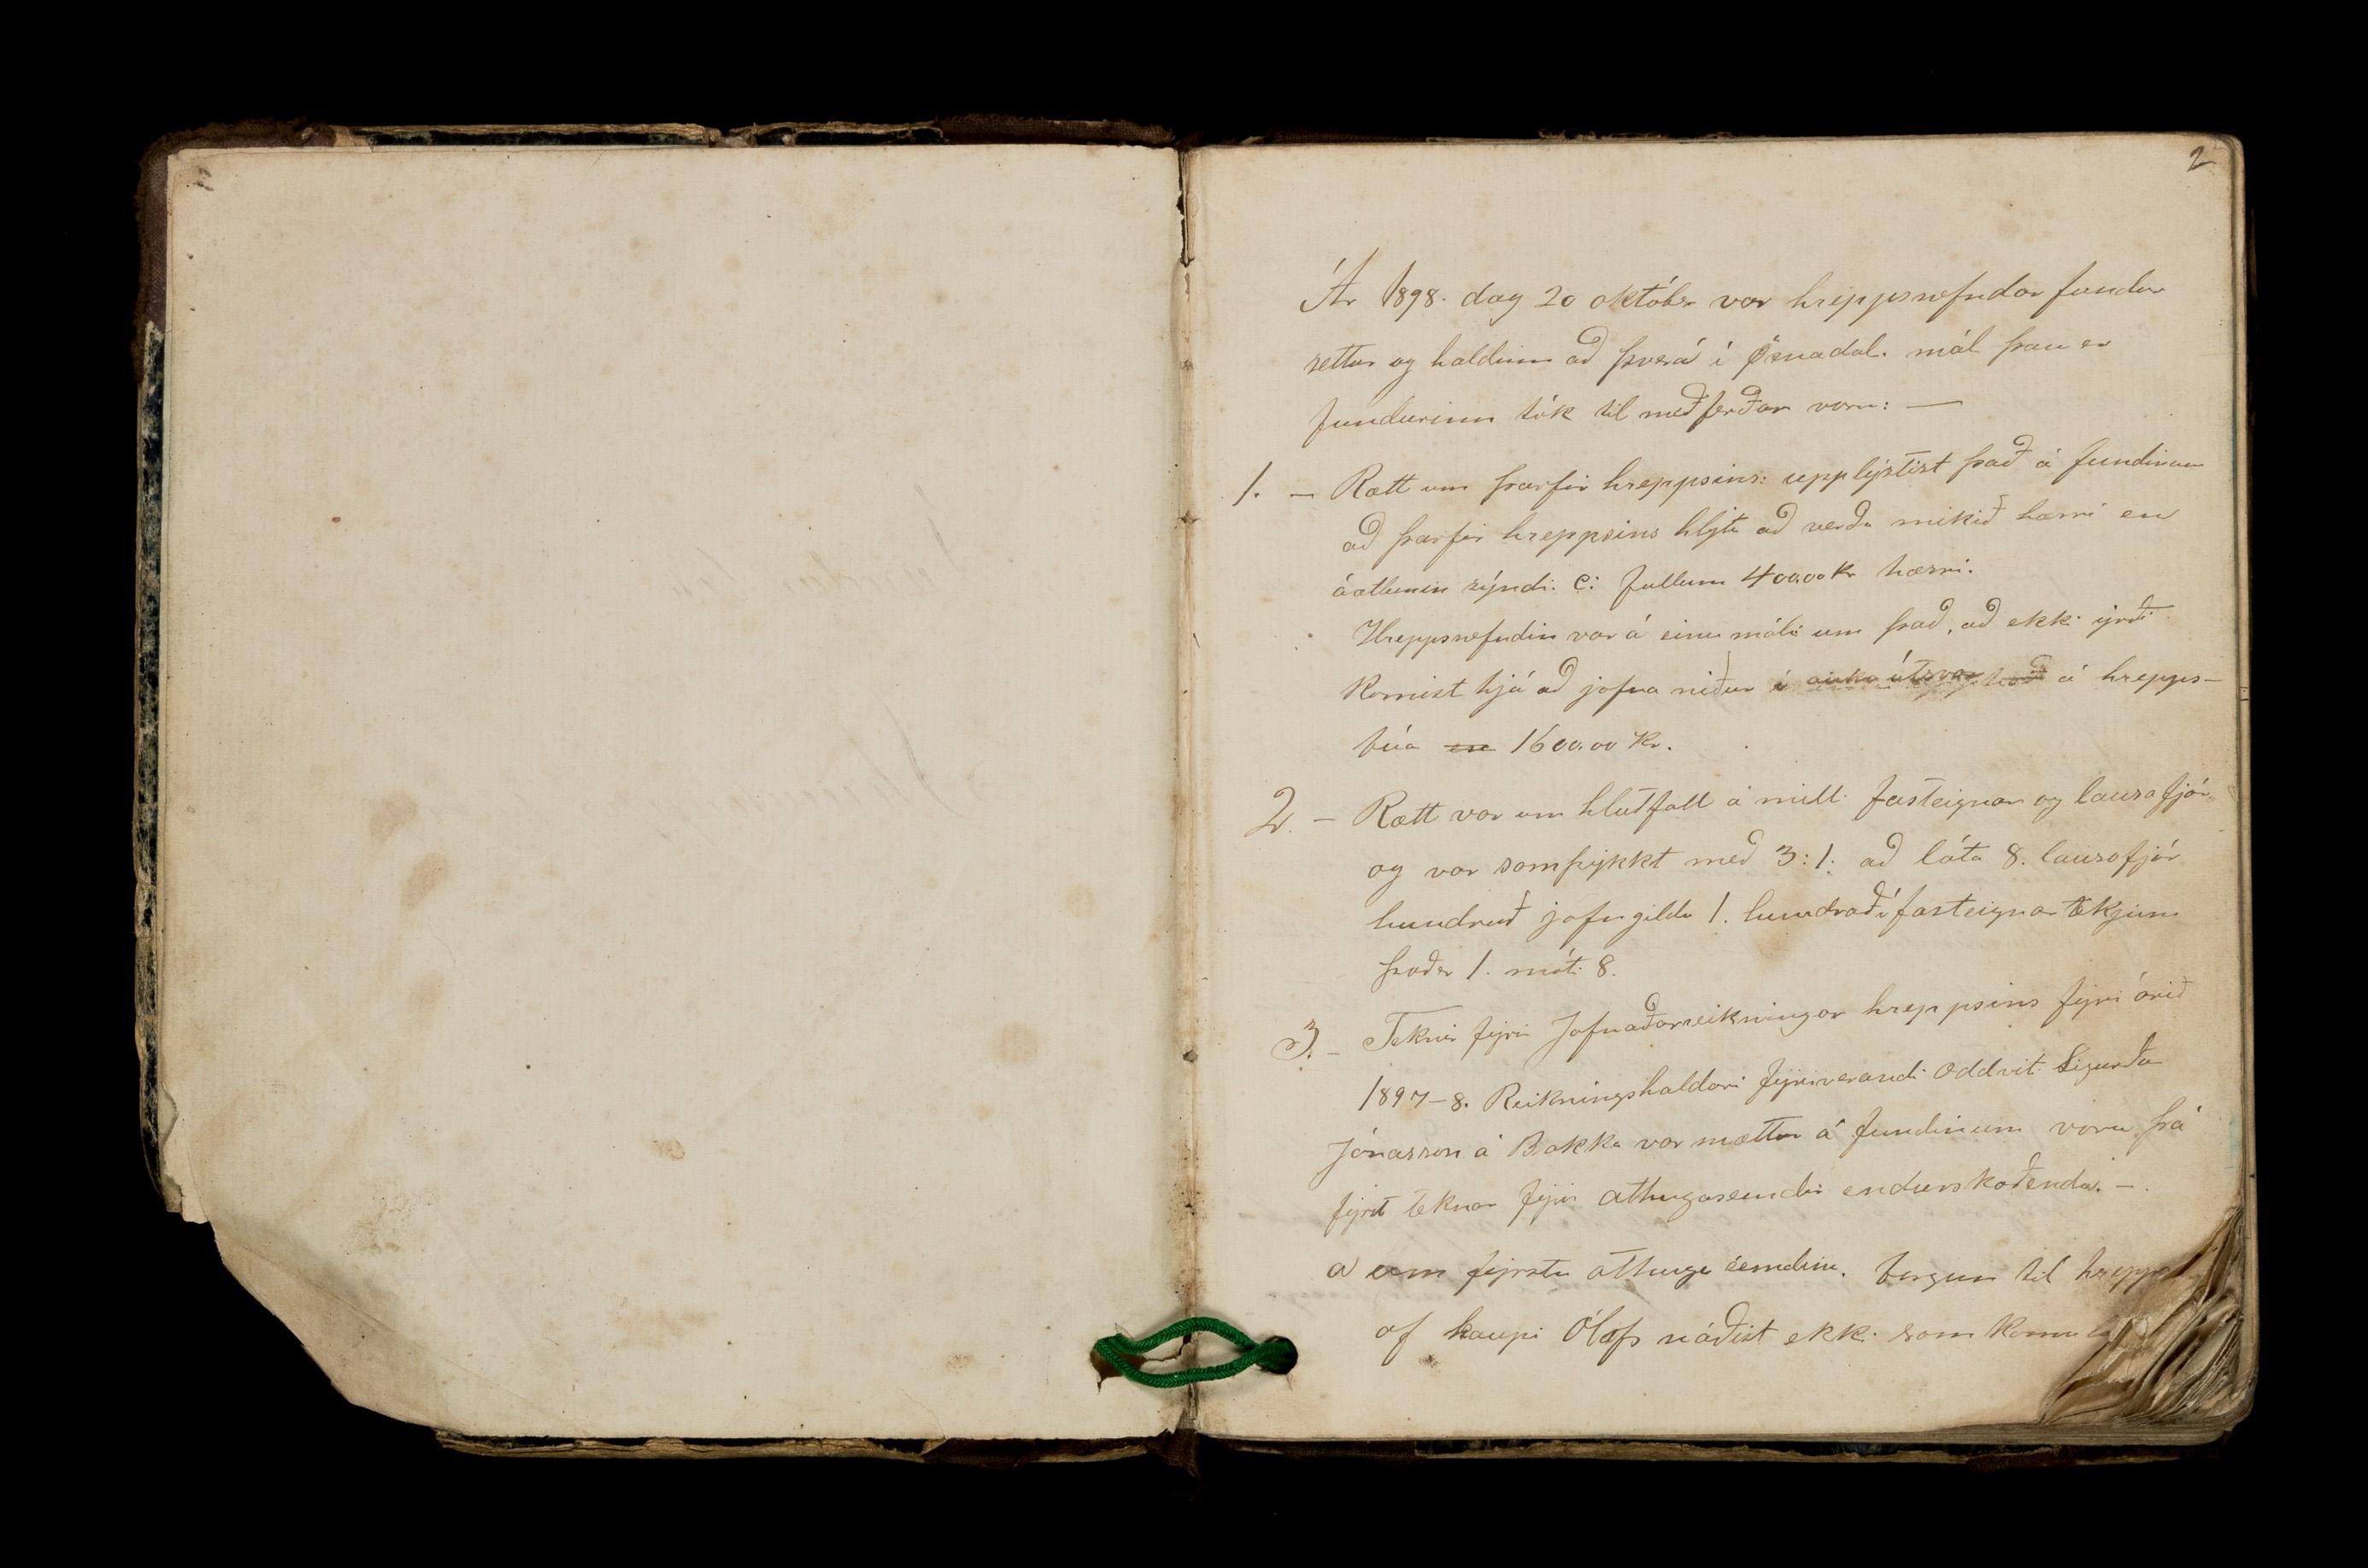 2
Ár 1898. dag 20 október var hreppsnefndar fundur
settur og haldinn að þverá í Öxnadal. mál þau er
fundurinn tók til meðferðar voru: —
1. — Rætt um þarfir hreppsins: upplýstist það á fundinum
að þarfir hreppsins hlýtu að verða mikið hærri en
áætlunin sýndi. c: fullum 400.00 kr hærri.
Hreppsnefndin var á einu máli um það, að ekki yrði
komist hjá að jafna niður í auka útsvar á hrepps-
búa en 1600.00 kr.
2. — Rætt var um hlutfall á milli fasteignar og lausafjár
og var samþykkt með 3:1. að láta 8. lausafjár
hundruð jafngilda 1. hundraði í fasteignar tekjum
það er 1. móti 8.
3. — Teknir fyrir Jafnaðarreikningar hreppsins fyrir árið
1897–8. Reikningshaldari fyrirverandi Oddviti Sigurður
Jónasson á Bakka var mættur á fundinum voru þá
fyrst teknar fyrir athugasemdir endurskoðenda. —.
a um fyrstu athuga semdina. borgun til hrepps
af kaupi Ólafs náðist ekki sam komu